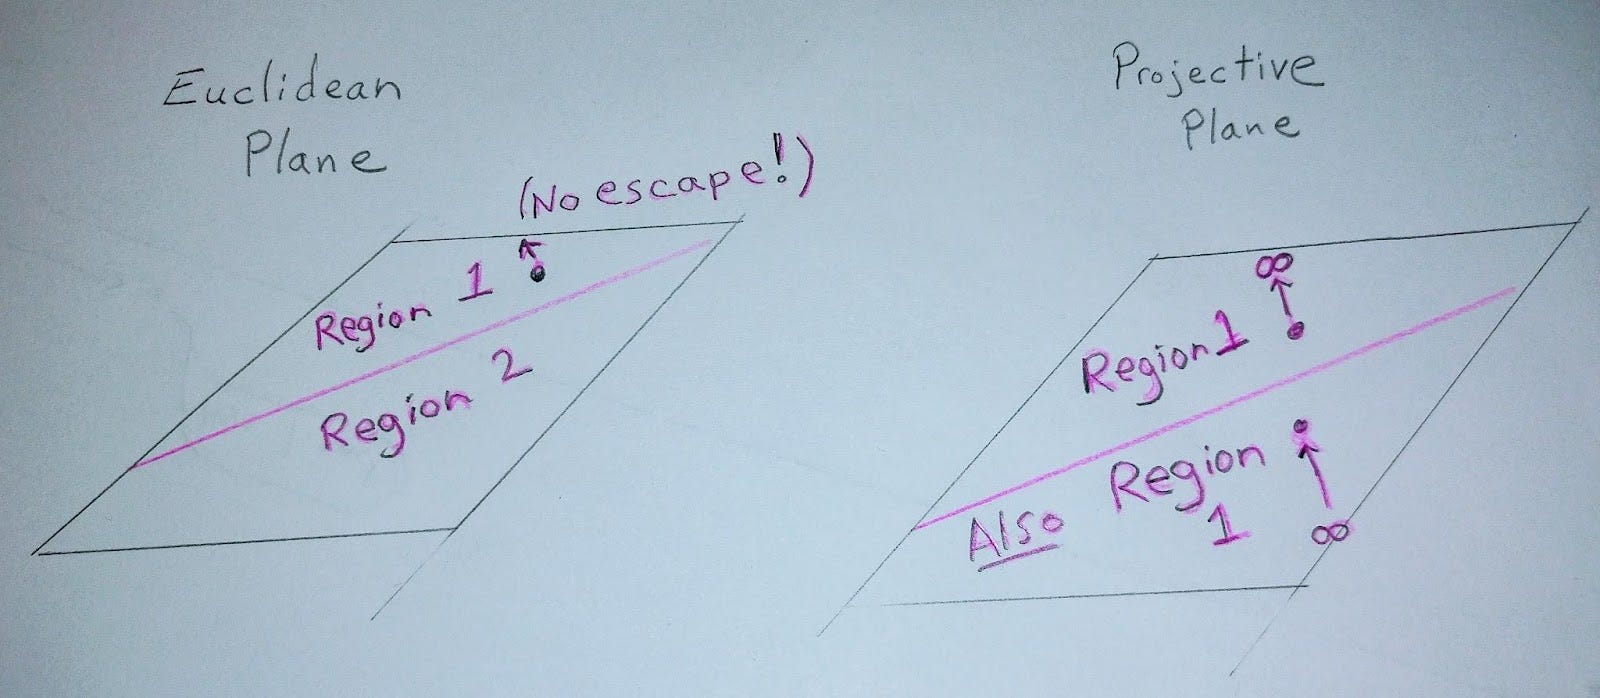 Euclidean
Plane
(No escape!)
Region 1
Region 2
Projective
Plane
∞
Region 1
Also Region
1
∞